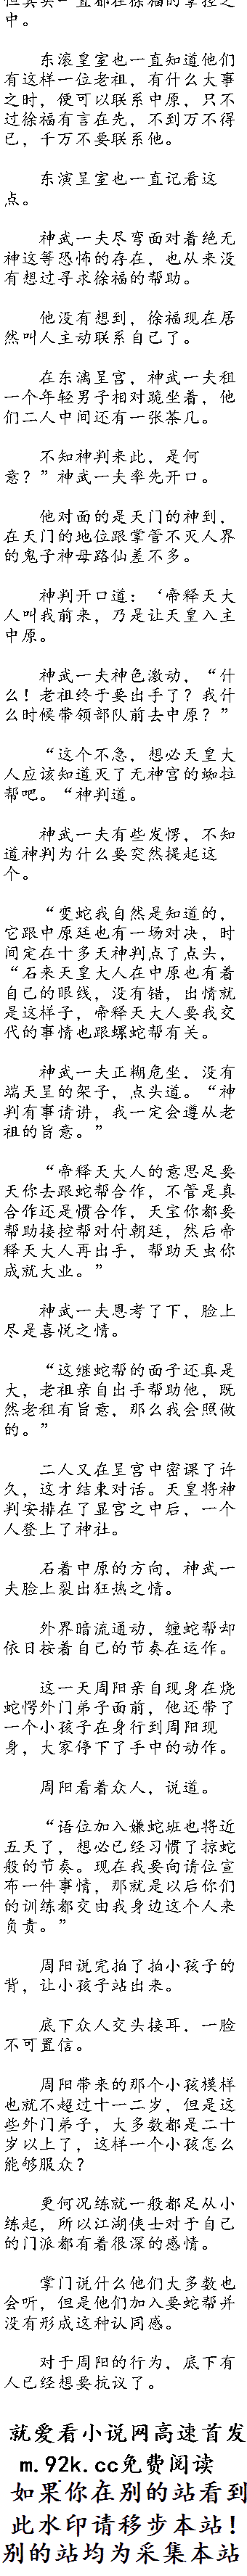 但其实一直都在徐福的掌控之
中。
东滚皇室也一直知道他们
有这样一位老祖，有什么大事
之时，便可以联系中原，只不
过徐福有言在先，不到万不得
已，千万不要联系他。
东演呈室也一直记看这
点。
神武一夫尽弯面对着绝无
神这等恐怖的存在，也从来没
有想过寻求徐福的帮助。
他没有想到，徐福现在居
然叫人主动联系自己了。
在东漓呈宫，神武一夫租
一个年轻男子相对跪坐着，他
们二人中间还有一张茶几。
不知神判来此，是何
意？”神武一夫率先开口。
他对面的是天门的神到，
在天门的地位跟掌管不灭人界
的鬼子神母路仙差不多。
神判开口道：‘帝释天大
人叫我前来，乃是让天皇入主
中原。
神武一夫神色激动，“什
么！老祖终于要出手了？我什
么时候带领部队前去中原？”
“这个不急，想必天皇大
人应该知道灭了无神宫的蜘拉
帮吧。“神判道。
神武一夫有些发愣，不知
道神判为什么要突然提起这
个。
“变蛇我自然是知道的，
它跟中原廷也有一场对决，时
间定在十多天神判点了点头，
“石来天皇大人在中原也有着
自己的眼线，没有错，出情就
是这样子，帝释天大人要我交
代的事情也跟螺蛇帮有关。
神武一夫正糊危坐，没有
端天呈的架子，点头道。“神
判有事请讲，我一定会遵从老
祖的旨意。”
“帝释天大人的意思足要
天你去跟蛇帮合作，不管是真
合作还是惯合作，天宝你都要
帮助接控帮对付朝廷，然后帝
释天大人再出手，帮助天虫你
成就大业。”
神武一夫思考了下，脸上
尽是喜悦之情。
“这继蛇帮的面子还真是
大，老祖亲自出手帮助他，既
然老租有旨意，那么我会照做
的。”
二人又在呈宫中密课了许
久，这才结束对话。天皇将神
判安排在了显宫之中后，一个
人登上了神社。
石着中原的方向，神武一
夫脸上裂出狂热之情。
外界暗流通动，缠蛇帮却
依日按着自己的节奏在运作。
这一天周阳亲自现身在烧
蛇愕外门弟子面前，他还带了
一个小孩子在身行到周阳现
身，大家停下了手中的动作。
周阳看着众人，说道。
“语位加入嫌蛇班也将近
五天了，想必已经习惯了掠蛇
般的节奏。现在我要向请位宣
布一件事情，那就是以后你们
的训练都交由我身边这个人来
负责。”
周阳说完拍了拍小孩子的
背，让小孩子站出来。
底下众人交头接耳，一脸
不可置信。
周阳带来的那个小孩模样
也就不超过十一二岁，但是这
些外门弟子，大多数都是二十
岁以上了，这样一个小孩怎么
能够服众？
更何况练就一般都足从小
练起，所以江湖侠士对于自己
的门派都有着很深的感情。
掌门说什么他们大多数也
会听，但是他们加入要蛇帮并
没有形成这种认同感。
对于周阳的行为，底下有
人已经想要抗议了。
就爱看小说网高速首发
m.92k.cc免费阅读
如果你在别的站看到
此水印请移步本站！
别的站均为采集本站